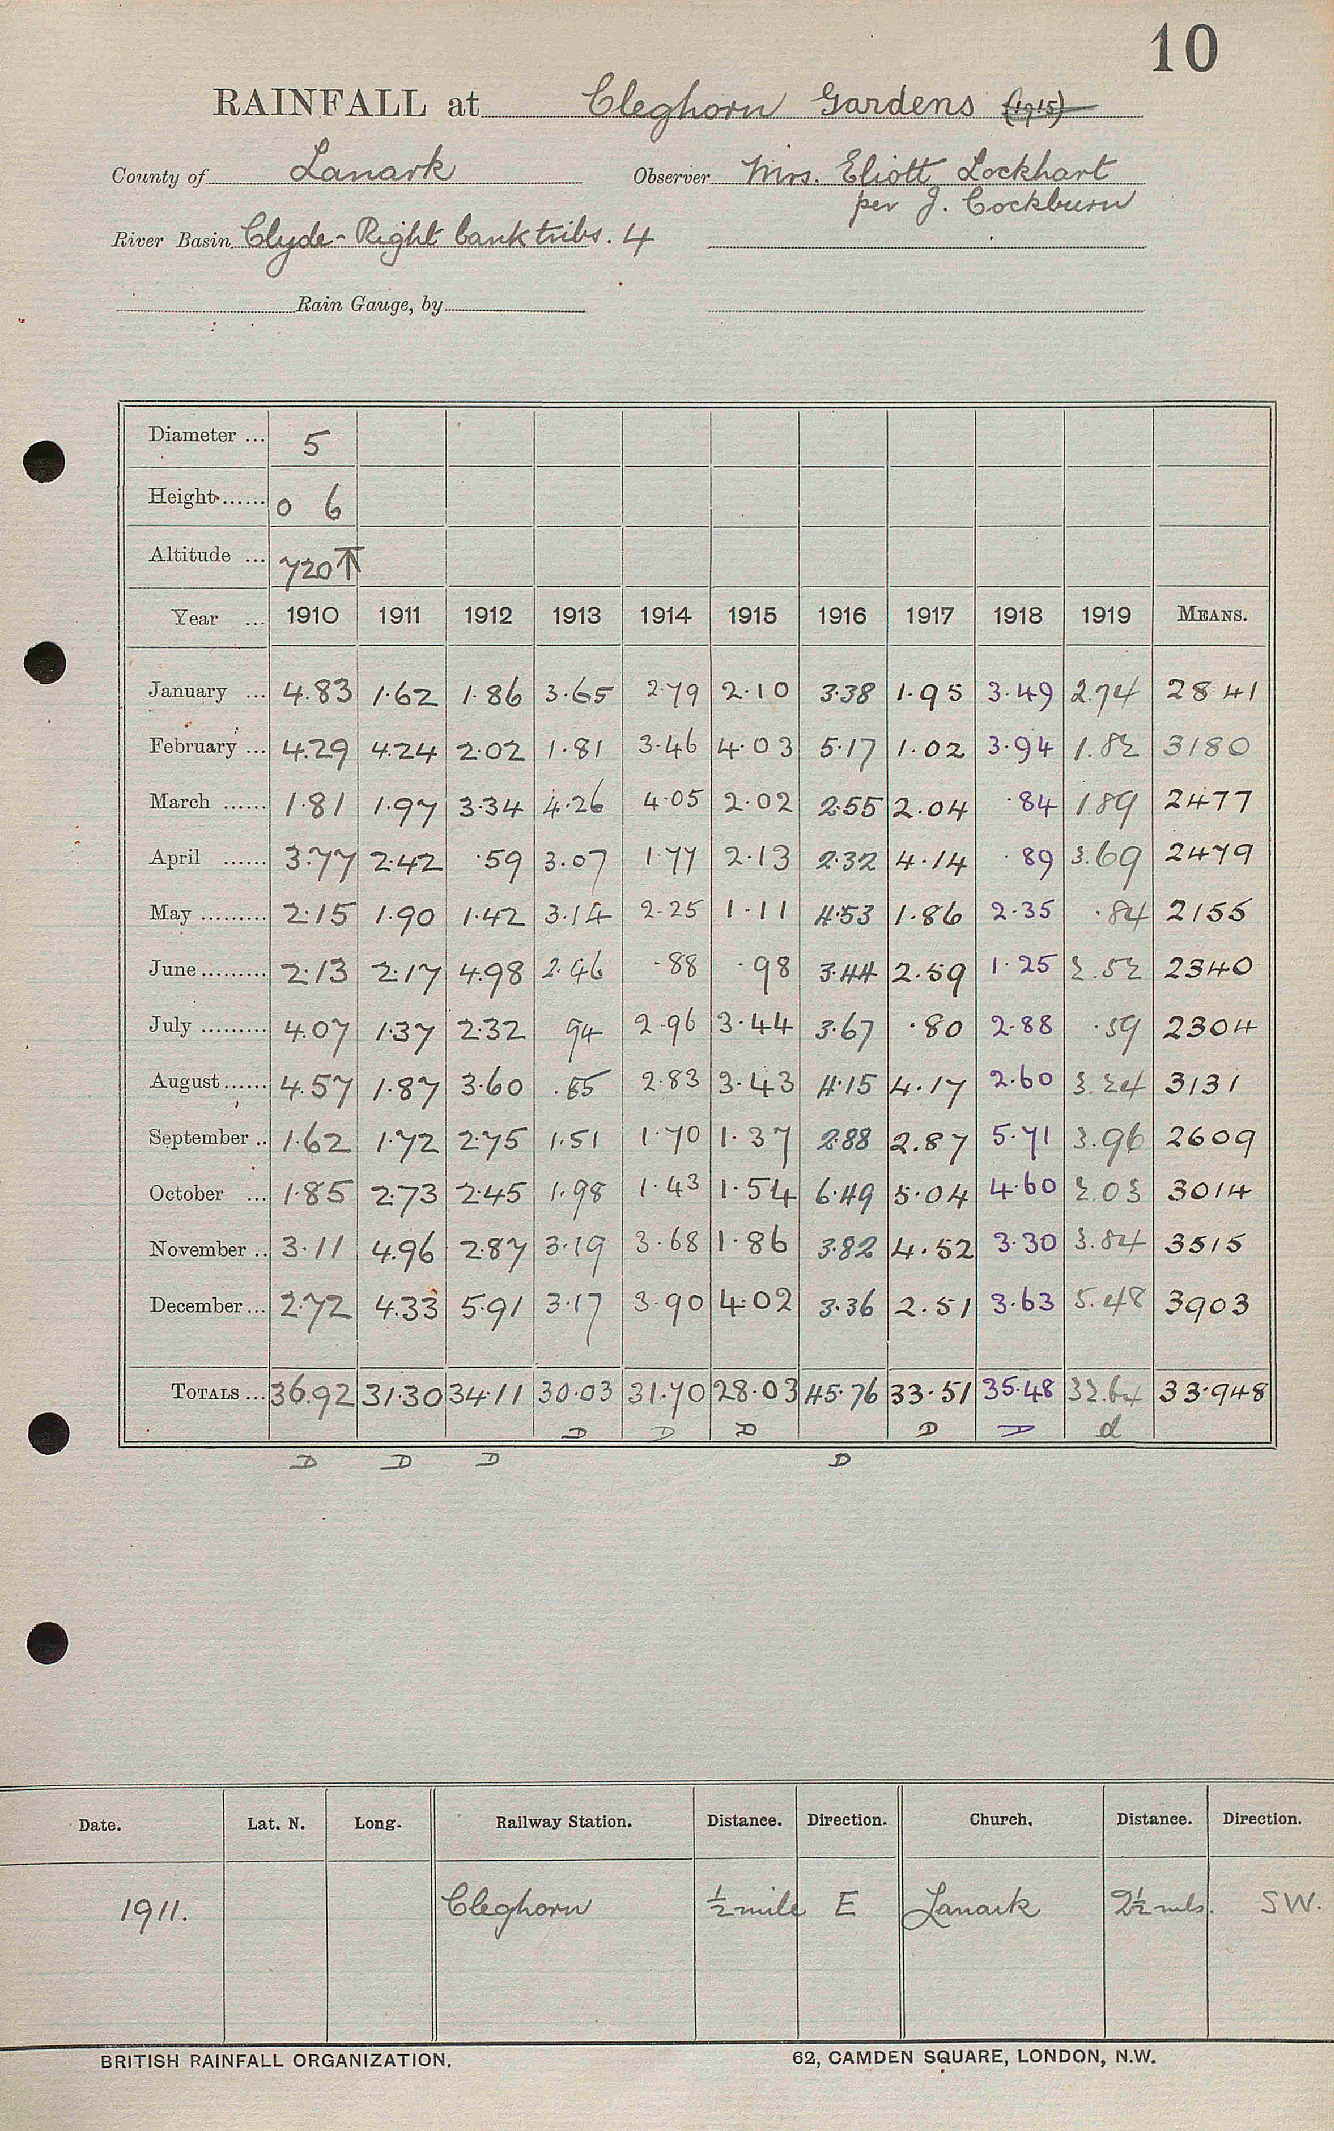 10
RAINFALL at Cleghorn Gardens (1915)
County of Lanark Observer Mrs. Eliott Lockhart
per J. Cockburn
River Basin Clyde - Right bank tribs. 4
Rain Gauge, by
Diameter ... 5
Height ...... 0 6
Altitude ... 720 T
Year ... 1910 1911 1912 1913 1914 1915 1916 1917 1918 1919 MEANS.
January ... 4.83 1.62 1.86 3.65 2.79 2.10 3.38 1.95 3.49 2.74 2841
February ... 4.29 4.24 2.02 1.81 3.46 4.03 5.17 1.02 3.94 1.82 3180
March ...... 1.81 1.97 3.34 4.26 4.05 2.02 2.55 2.04 .84 1.89 2477
April ...... 3.77 2.42 .59 3.07 1.77 2.13 2.32 4.14 .89 3.69 2479
May ......... 2.15 1.90 1.42 3.14 2.25 1.11 4.53 1.86 2.35 .84 2155
June ......... 2.13 2.17 4.98 2.46 .88 .98 3.44 2.59 1.25 2.52 2340
July ......... 4.07 1.37 2.32 94 2.96 3.44 3.67 .80 2.88 .59 2304
August ...... 4.57 1.87 3.60 .85 2.83 3.43 4.15 4.17 2.60 3.24 3131
September .. 1.62 1.72 2.75 1.51 1.70 1.37 2.88 2.87 5.71 3.96 2609
October ... 1.85 2.73 2.45 1.98 1.43 1.54 6.49 5.04 4.60 2.03 3014
November .. 3.11 4.96 2.87 3.19 3.68 1.86 3.82 4.52 3.30 3.84 3515
December ... 2.72 4.33 5.91 3.17 3.90 4.02 3.36 2.51 3.63 5.48 3903
TOTALS ... 36.92 31.30 34.11 30.03 31.70 28.03 45.76 33.51 35.48 32.64 33.948
D D D D D d
D D D D
Date. Lat. N. Long. Railway Station. Distance. Direction. Church. Distance. Direction.
1911. Cleghorn ½ mile E Lanark 2½ mls. SW.
BRITISH RAINFALL ORGANIZATION. 62, CAMDEN SQUARE, LONDON, N.W.